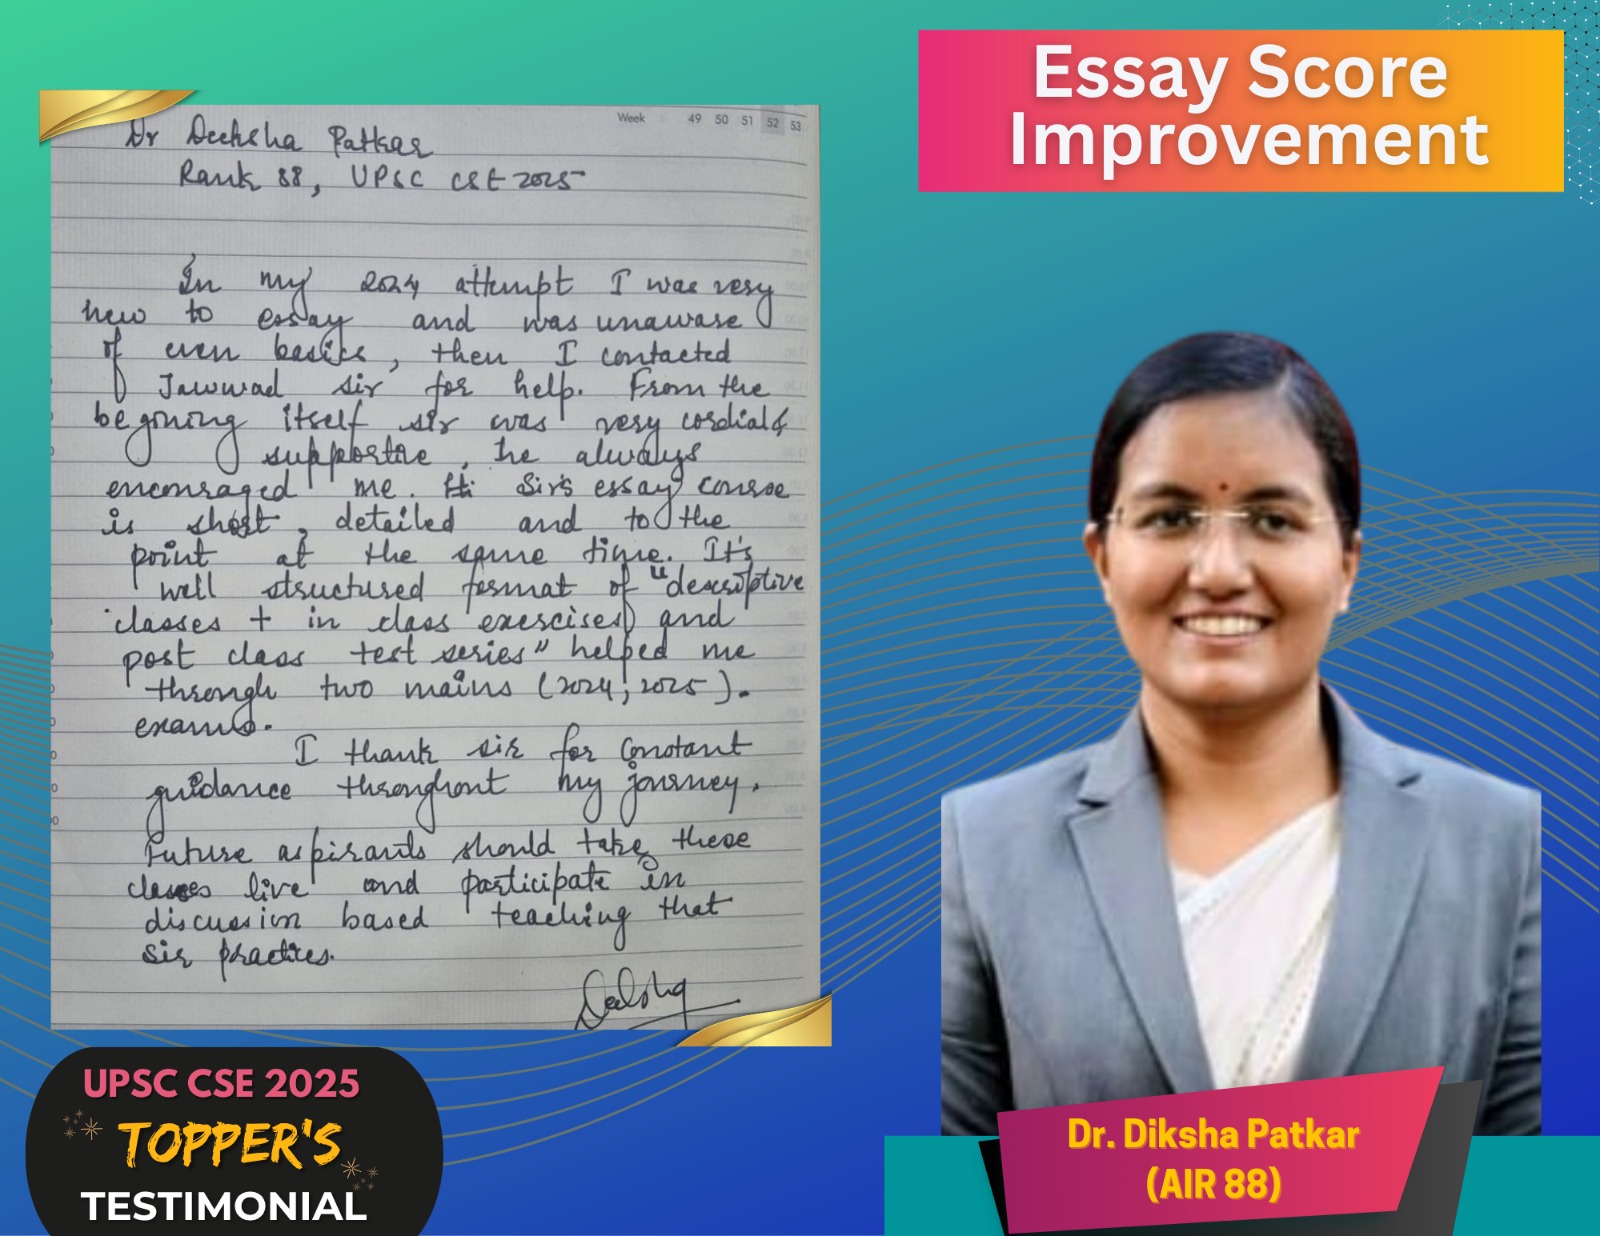 Essay Score
Improvement
Week 49 50 51 52 53
Dr Deeksha Patkar
Rank 88, UPSC CSE 2025
In my 2024 attempt I was very
new to essay and was unaware
of even basics, then I contacted
Jawwad sir for help. From the
begining itself sir was very cordial &
supportive, he always
encouraged me. Sir's essay course
is short, detailed and to the
point at the same time. It's
well structured format of "descriptive
classes + in class exercises and
post class test series" helped me
through two mains (2024, 2025).
exams.
I thank sir for constant
guidance throughout my journey.
Future aspirants should take these
classes live and participate in
discussion based teaching that
sir practices.
Deeksha
UPSC CSE 2025
TOPPER'S
TESTIMONIAL
Dr. Diksha Patkar
(AIR 88)